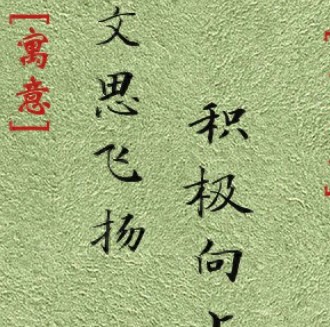 [寓意]
文思飞扬
积极向